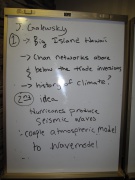 J. Gaukwsky
① → Big Island Hawaii
→ Chan networks above
& below the trade inversions
→ history of climate?
2nd idea
Hurricanes produce
seismic waves
- couple atmospheric model
to wavemodel